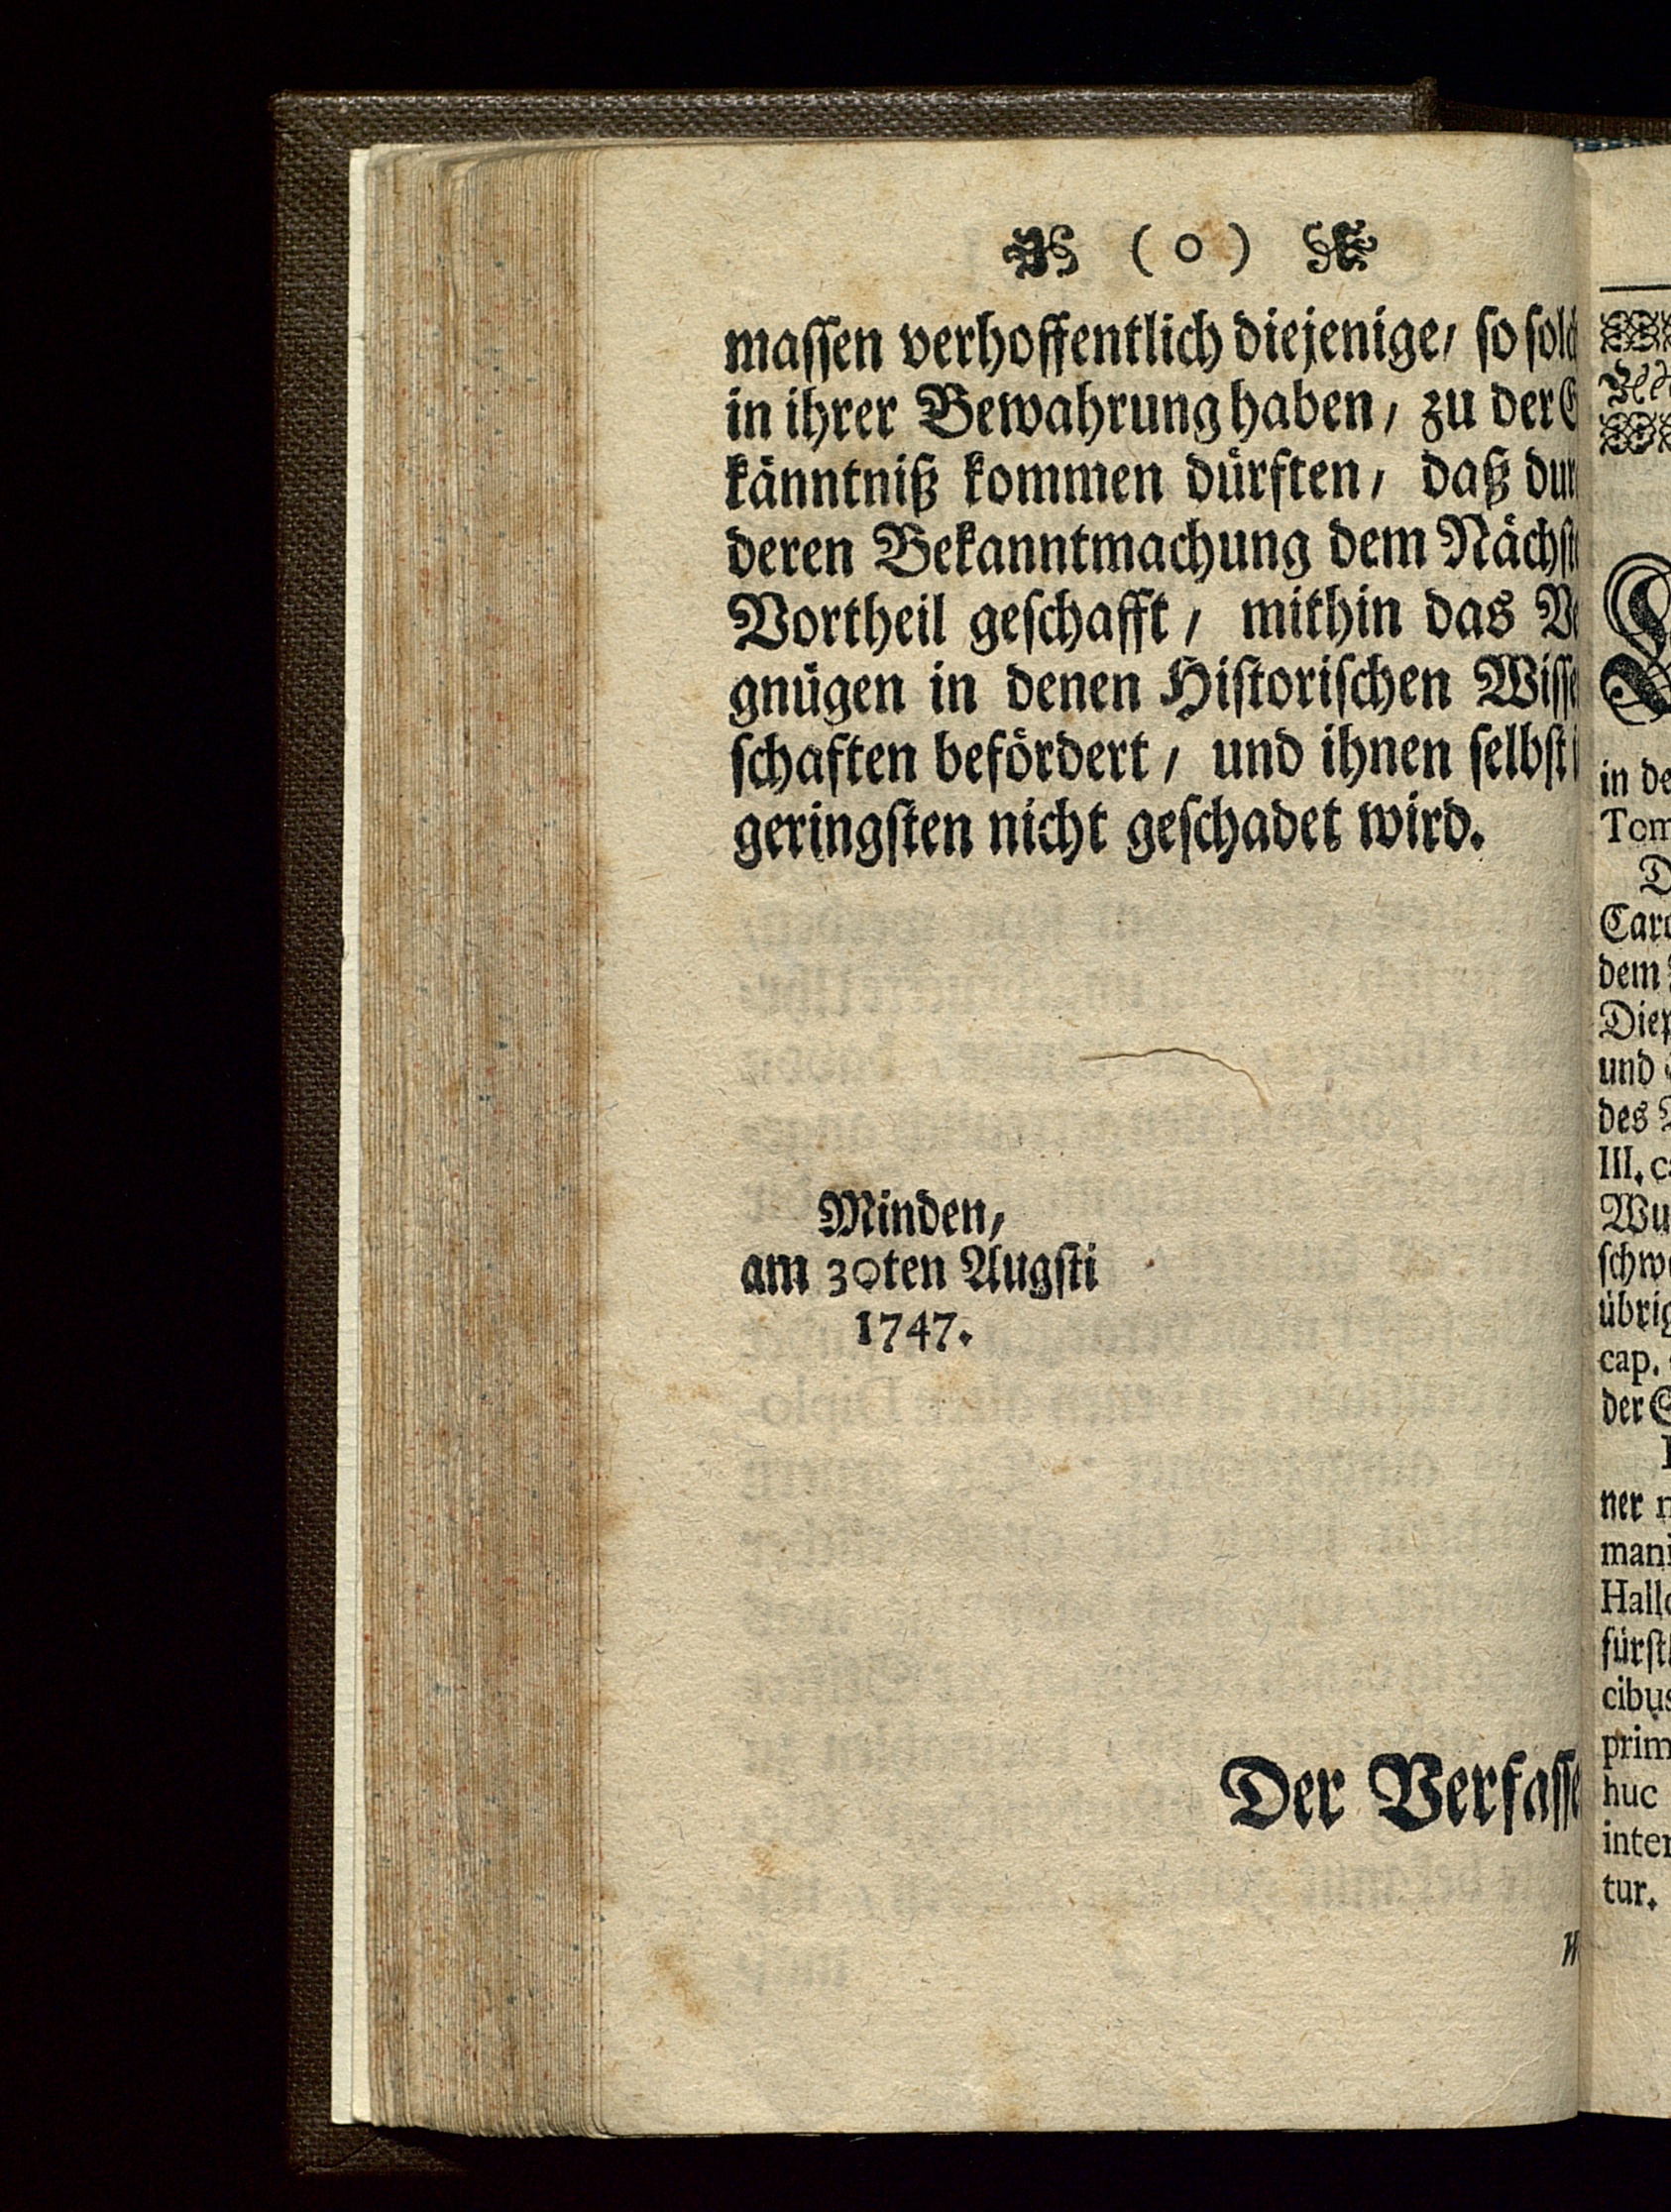 ( o )
massen verhoffentlich diejenige, so solch
in ihrer Bewahrung haben, zu der E
känntniß kommen dürften, daß dur
deren Bekanntmachung dem Nächst
Vortheil geschafft, mithin das Ve
gnügen in denen Historischen Wisse
schaften befördert, und ihnen selbst i
geringsten nicht geschadet wird.
Minden,
am 30ten Augsti
1747.
Der Verfasse
in de
Tom
D
Car
dem
Diep
und
des
III. c
Wu
schw
übrig
cap.
der G
ner n
mani
Hall
fürstl
cibus
prim
huc
inter
tur.